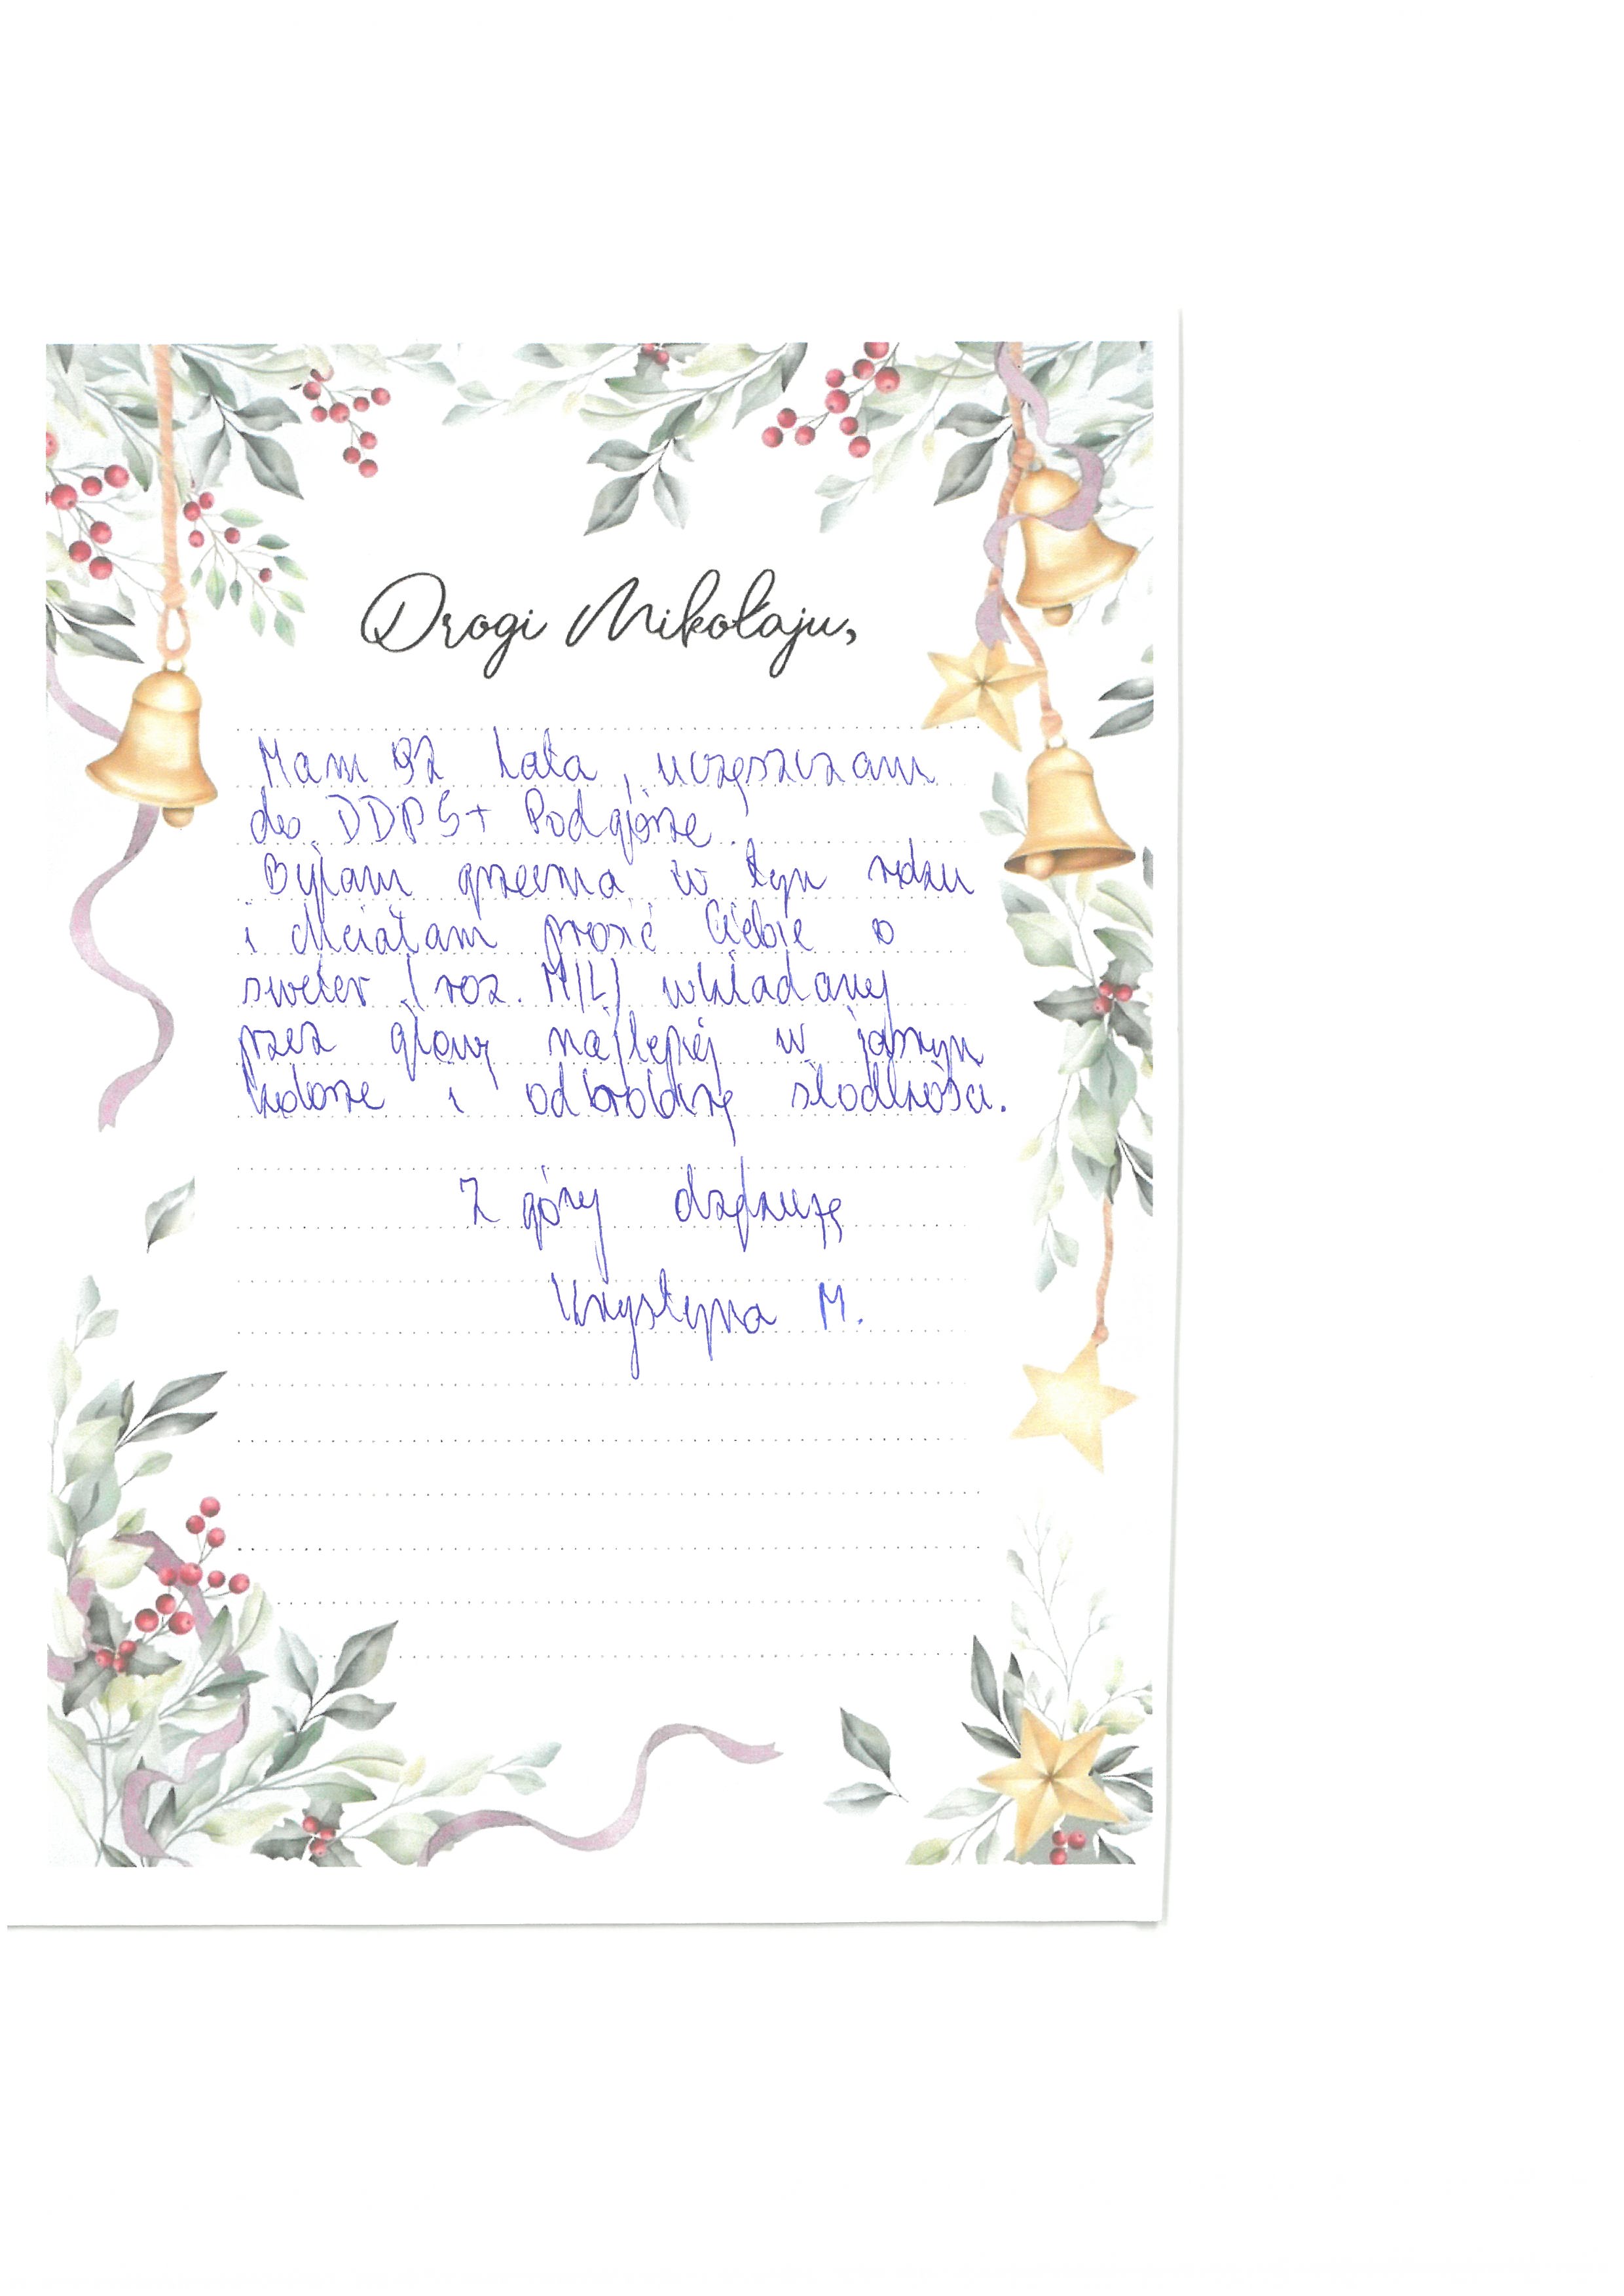 Drogi Mikołaju,
Mam 92 lata, uczęszczam
do DDPS+ Podgórze.
Byłam grzeczna w tym roku
i chciałam prosić Ciebie o
sweter (roz. M/L) wkładany
przez głowę najlepiej w jasnym
kolorze i odrobinę słodkości.
Z góry dziękuję
Krystyna M.